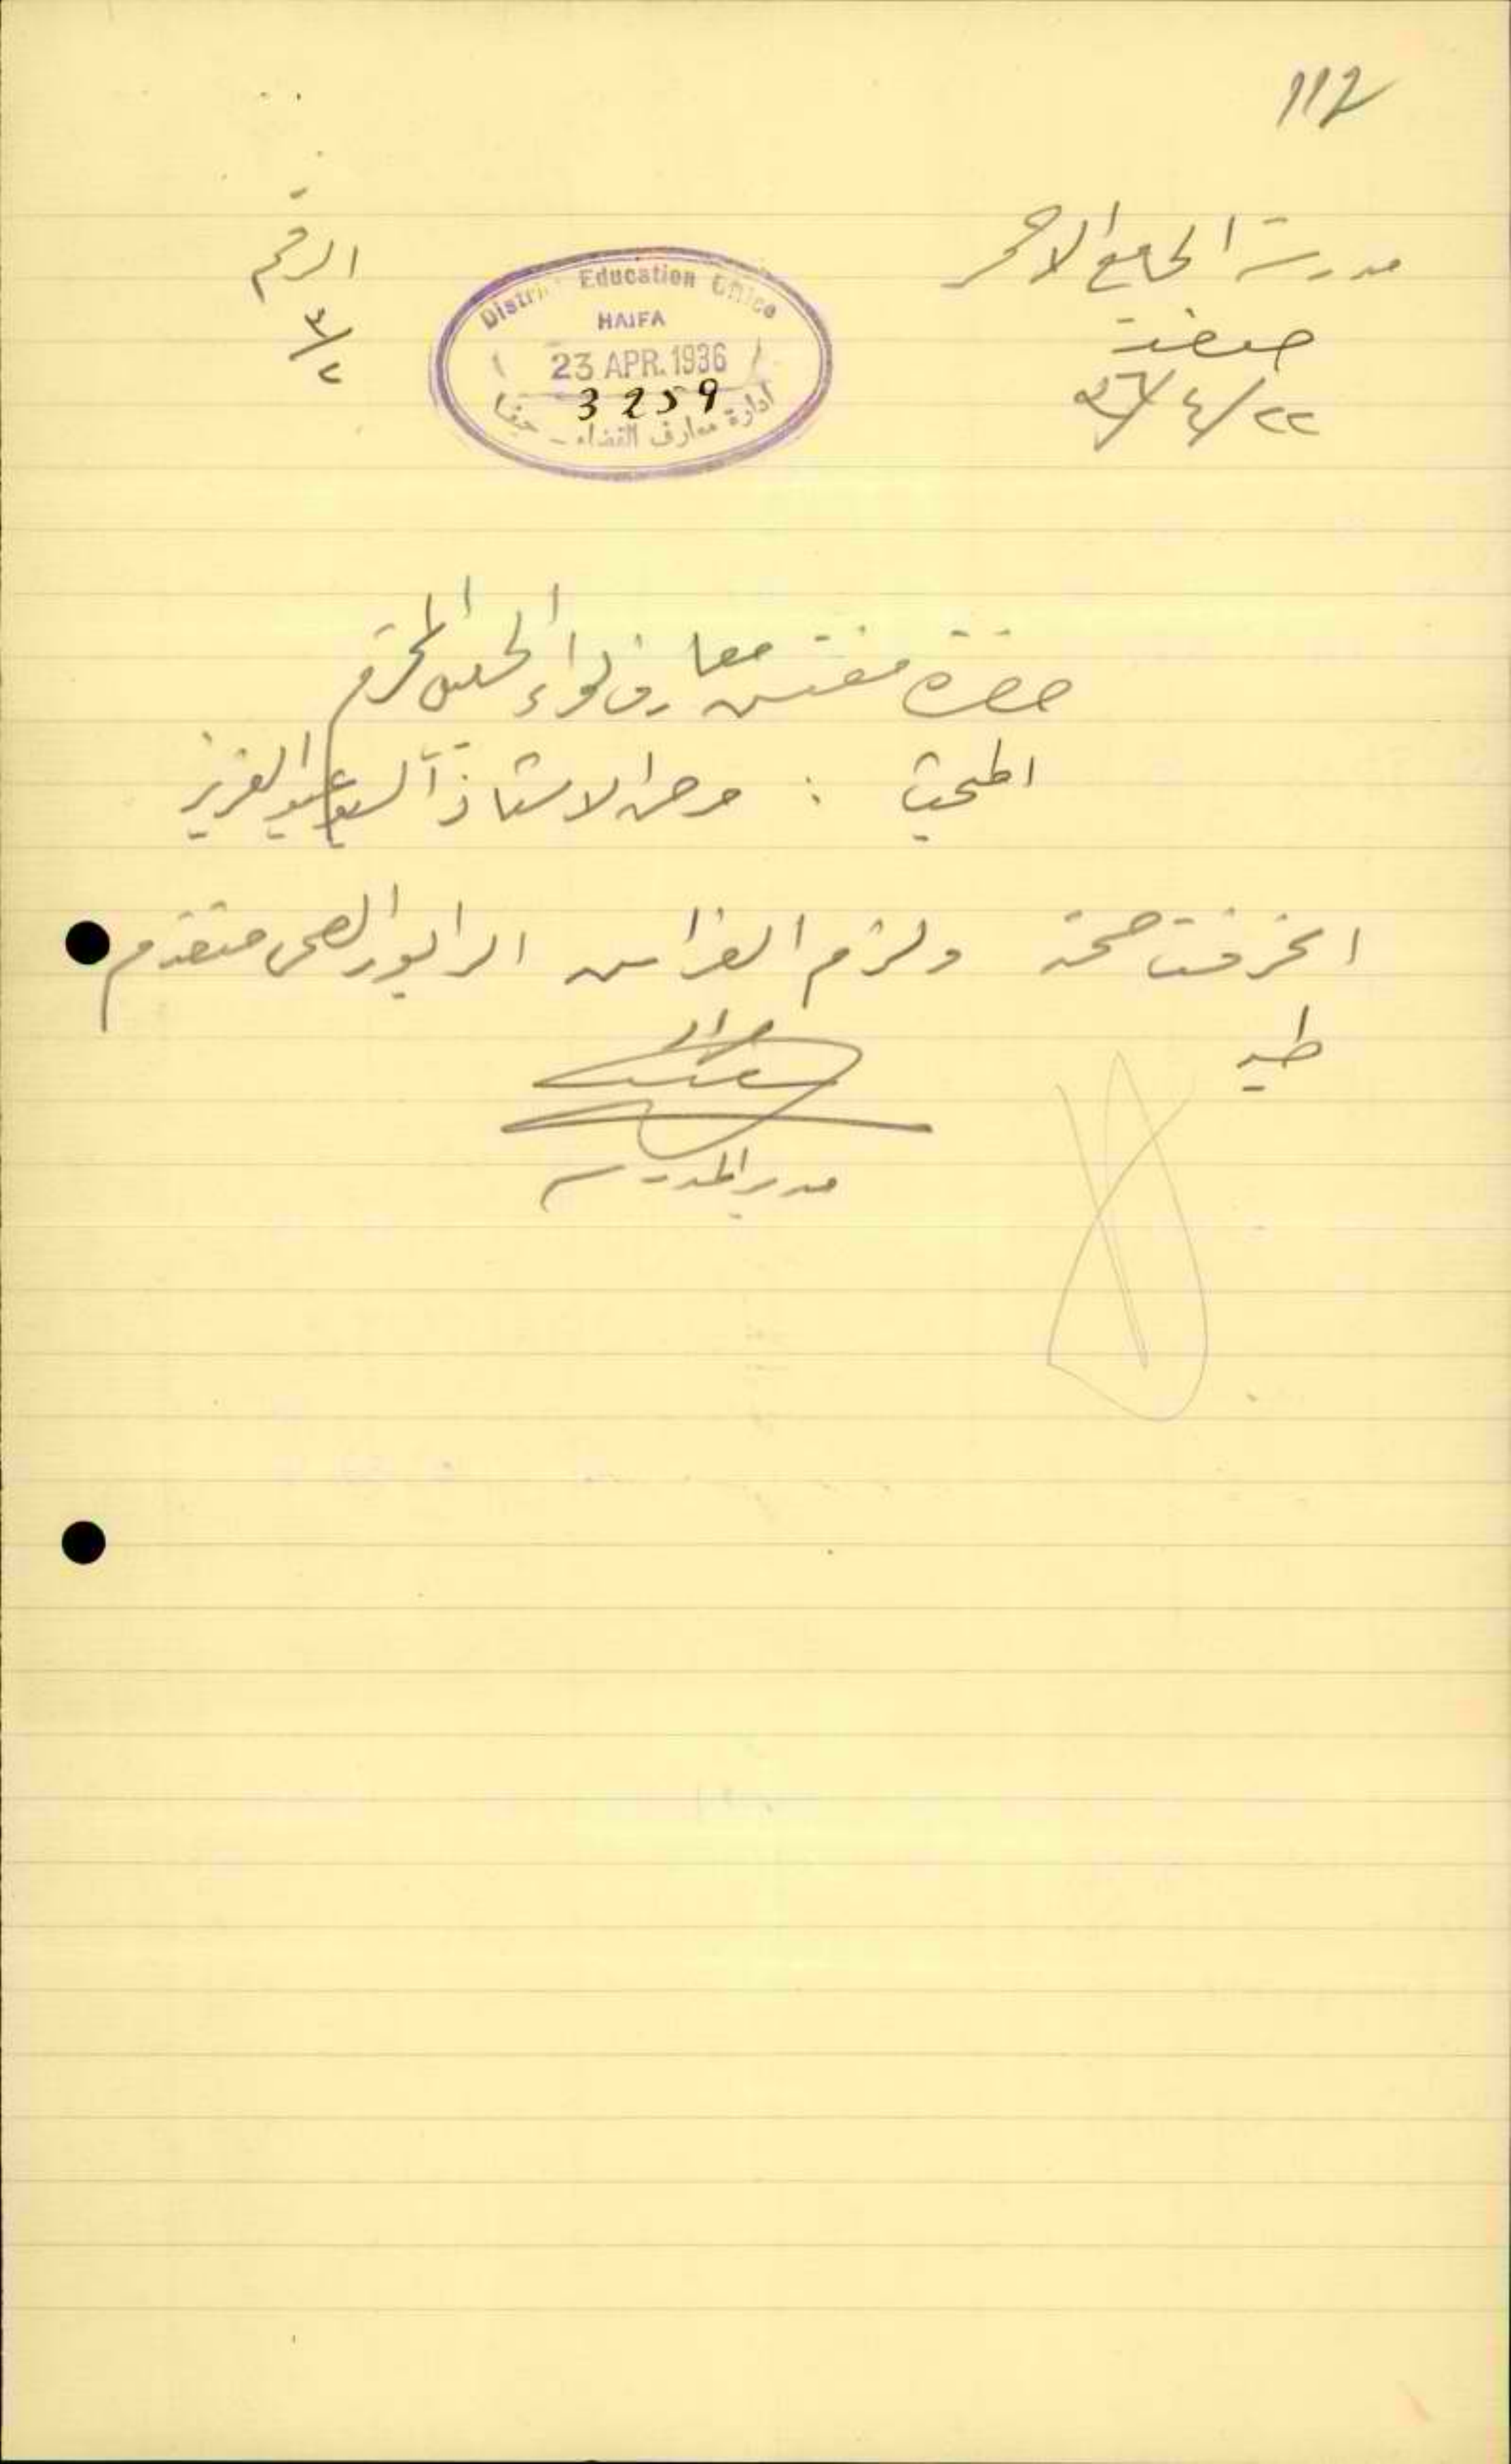 112
مدرسة الجامع الاحمر
صفد
٢٢/٤/٣٦
الرقم
٣/٢
District Education Office
HAIFA
23 APR. 1936
3259
ادارة معارف القضاء - حيفا
حضرة مفتش معارف لواء الجليل المحترم
المبحث : مرض الاستاذ السيد عبد العزيز
انحرفت صحته ولزم الفراش الرابور الصحي مقدم
طيه
مدير المدرسة